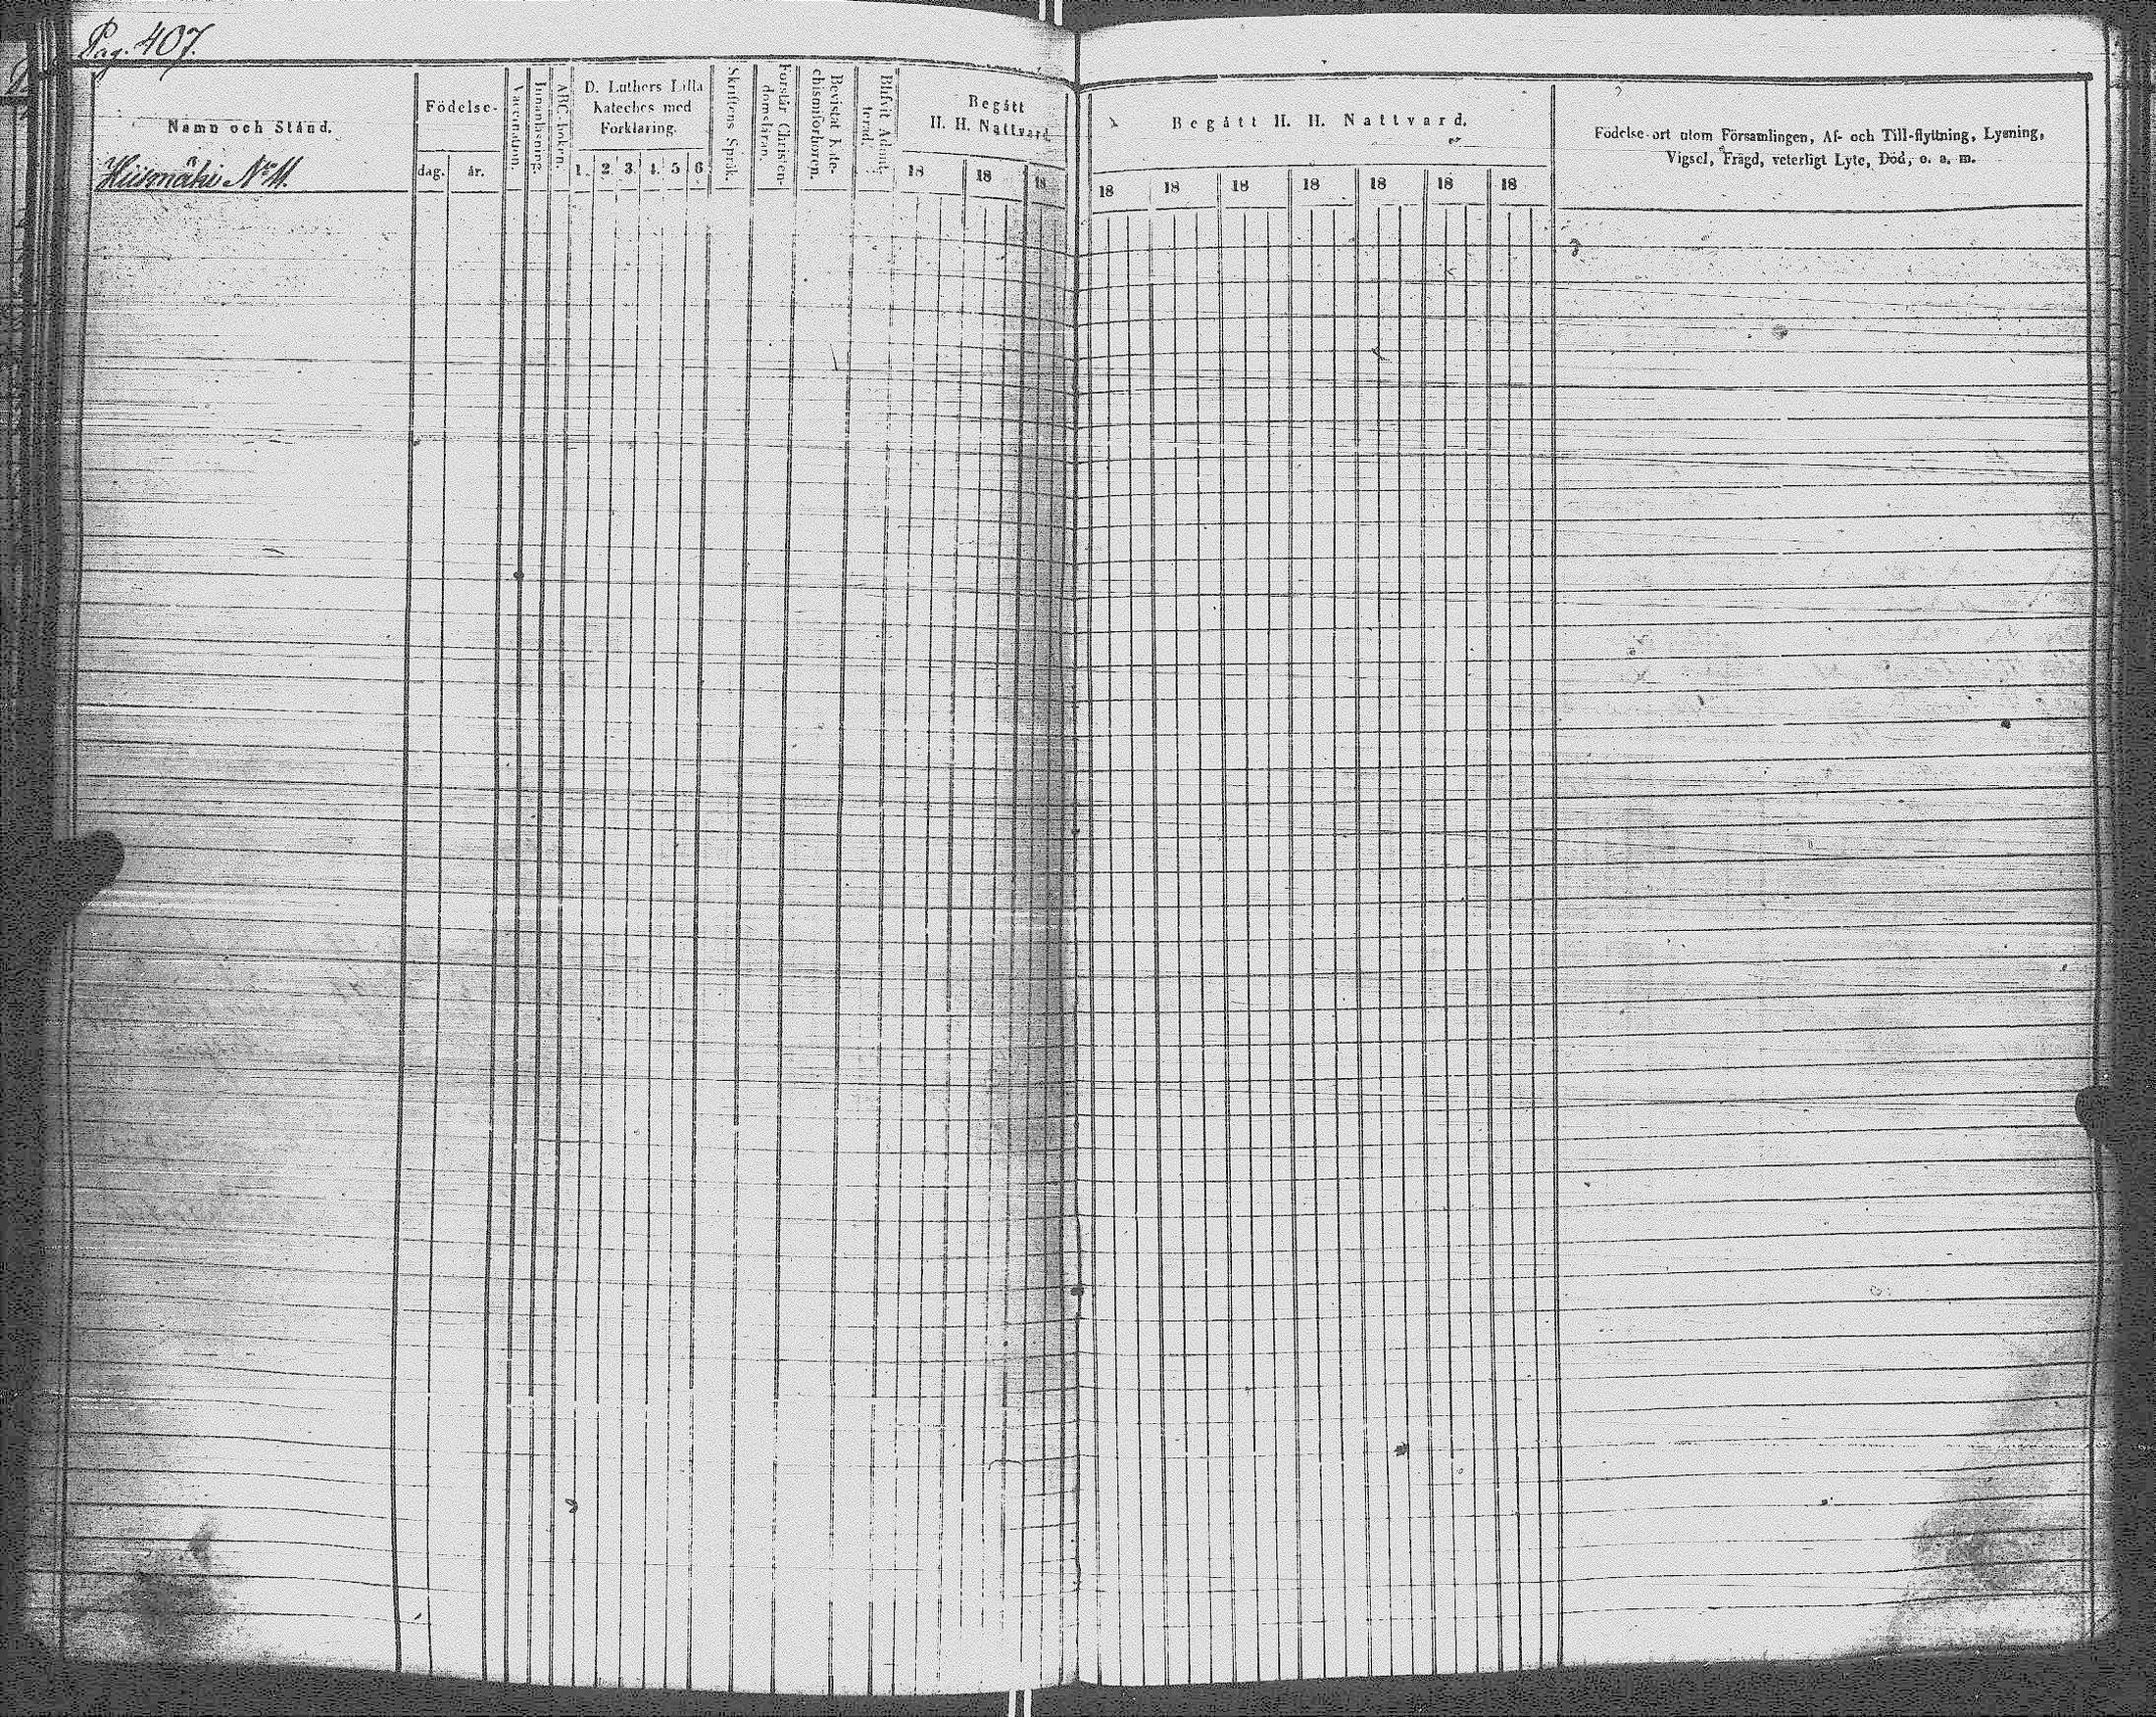 Pag. 407.
Namn och Stånd.
Hiismäki No 11.
Födelse-
dag. år.
Vaccination.
Innanläsning.
ABC-boken.
D. Luthers Lilla
Kateches med
Förklaring.
1. 2. 3. 4. 5 6
Skriftens Språk.
Förstår Christen-
domsläran.
Bevistat Kate-
chismiförhören.
Blifvit Admit-
terad.
Begått
H. H. Nattvard
18 18 18
Begått H. H. Nattvard.
18 18 18 18 18 18 18
Födelse-ort utom Församlingen, Af- och Till-flyttning, Lysning,
Vigsel, Frägd, veterligt Lyte, Död, o. s. m.